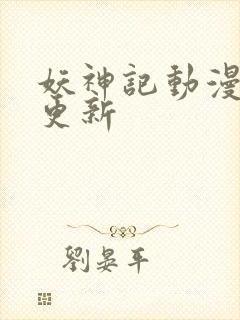 妖神記動漫
更新
劉晏平